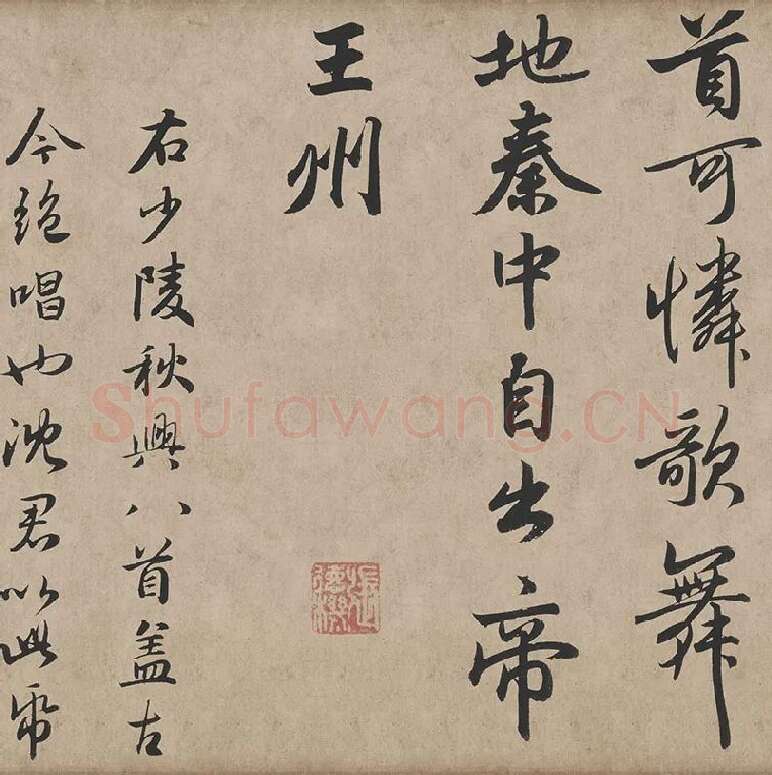 首可憐歌舞
地秦中自古帝
王州
右少陵秋興八首盖古
今絶唱也沈君以此帋
Shufawang.CN